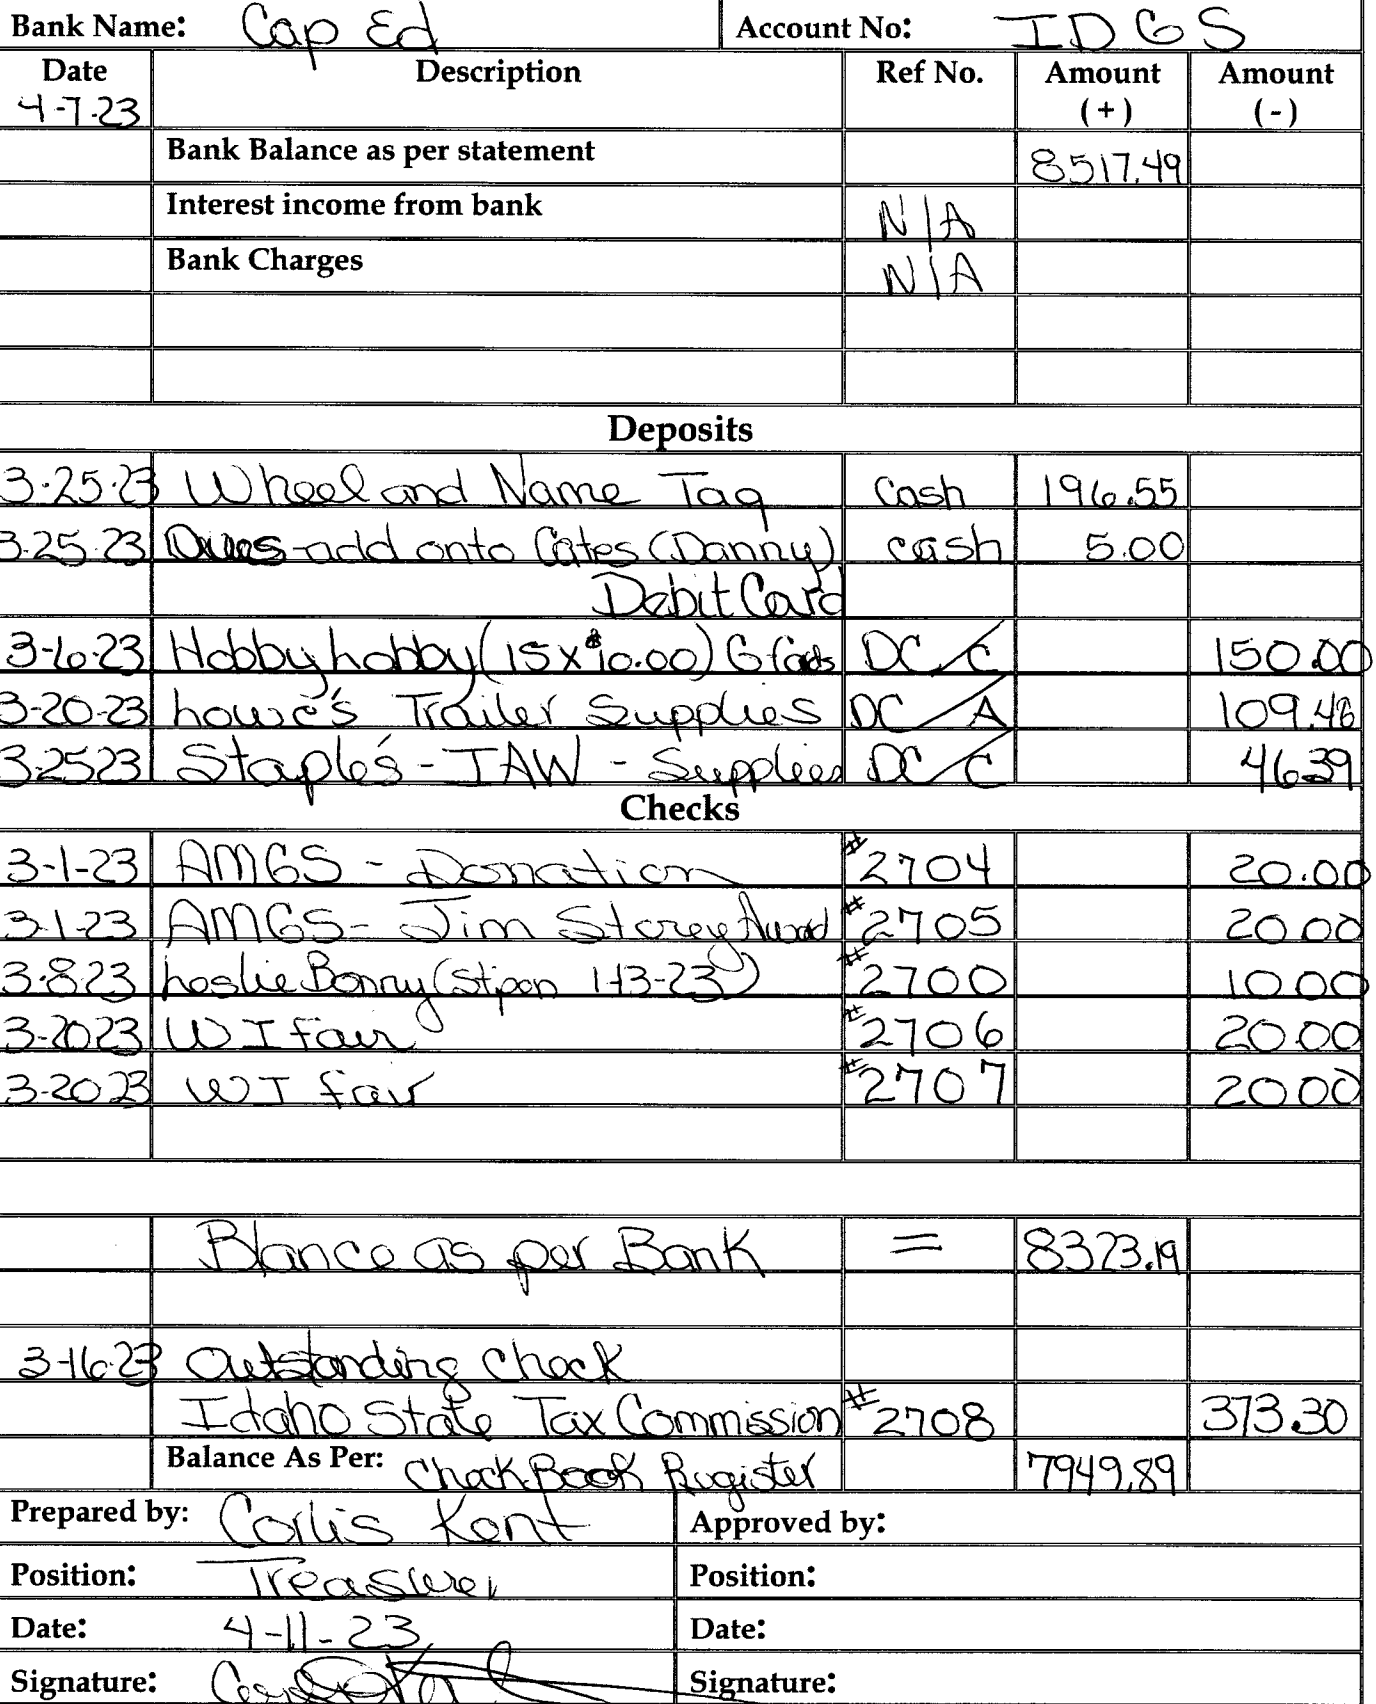 Bank Name: Cap Ed Account No: IDGS
Date Description Ref No. Amount Amount
4-7-23 (+) (-)
Bank Balance as per statement 8517.49
Interest income from bank N/A
Bank Charges N/A
Deposits
3-25-23 Wheel and Name Tag Cash 196.55
3-25-23 Dues-add onto Cates (Danny) cash 5.00
Debit Card
3-6-23 Hobby hobby (15x$10.00) G fads DC/C 150.00
3-20-23 Lowe's Trailer Supplies DC/A 109.46
3-25 23 Staple's - IAW - Supplies DC/C 46.39
Checks
3-1-23 AMGS - Donation #2704 20.00
3-1-23 AMGS - Jim Storey Award #2705 20.00
3-8-23 Leslie Bonny (Stipon 1-13-23) #2700 10.00
3-20 23 WI fair #2706 20.00
3-20 23 WI fair #2707 20.00
Blance as per Bank = 8323.19
3-16-23 Outstanding Check
Idaho State Tax Commission #2708 373.30
Balance As Per: CheckBook Register 7949.89
Prepared by: Corlis Kent Approved by:
Position: Treasurer Position:
Date: 4-11-23 Date:
Signature: Signature: